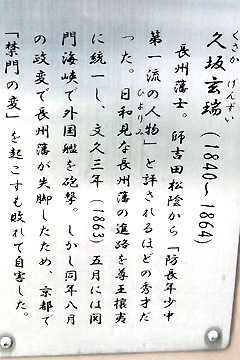 くさか げんずい
久坂玄瑞 (1840〜1864)
長州藩士。師吉田松陰から「防長年少中
第一流の人物」と評されるほどの秀才だ
ひよりみ
った。日和見な長州藩の進路を尊王攘夷
に統一し、文久三年(1863)五月には関
門海峡で外国艦を砲撃。しかし同年八月
の政変で長州藩が失脚したため、京都で
「禁門の変」を起こすも敗れて自害した。